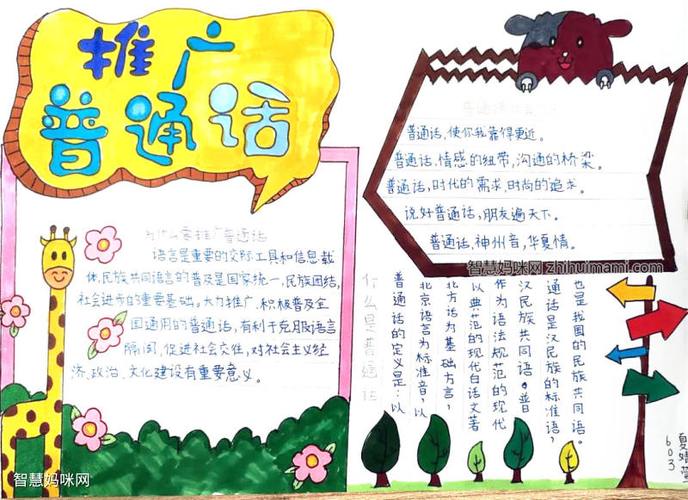 推广
普通话
为什么要推广普通话
语言是重要的交际工具和信息载
体,民族共同语言的普及是国家统一,民族团结,
社会进步的重要基础。大力推广、积极普及全
国通用的普通话,有利于克服语言
隔阂,促进社会交往,对社会主义经
济、政治、文化建设有重要意义。
智慧妈咪网
普通话,使你我靠得更近。
普通话,情感的纽带,沟通的桥梁。
普通话,时代的需求,时尚的追求。
说好普通话,朋友遍天下。
普通话,神州音,华夏情。
智慧妈咪网 zhihuimami.com
什么是普通话
普通话的定义是:以
北京语言为标准音,以
北方话为基础方言,
以典范的现代白话文著
作为语法规范的现代
汉民族共同语。普
通话是汉民族的标准语,
也是我国的民族共同语。
603